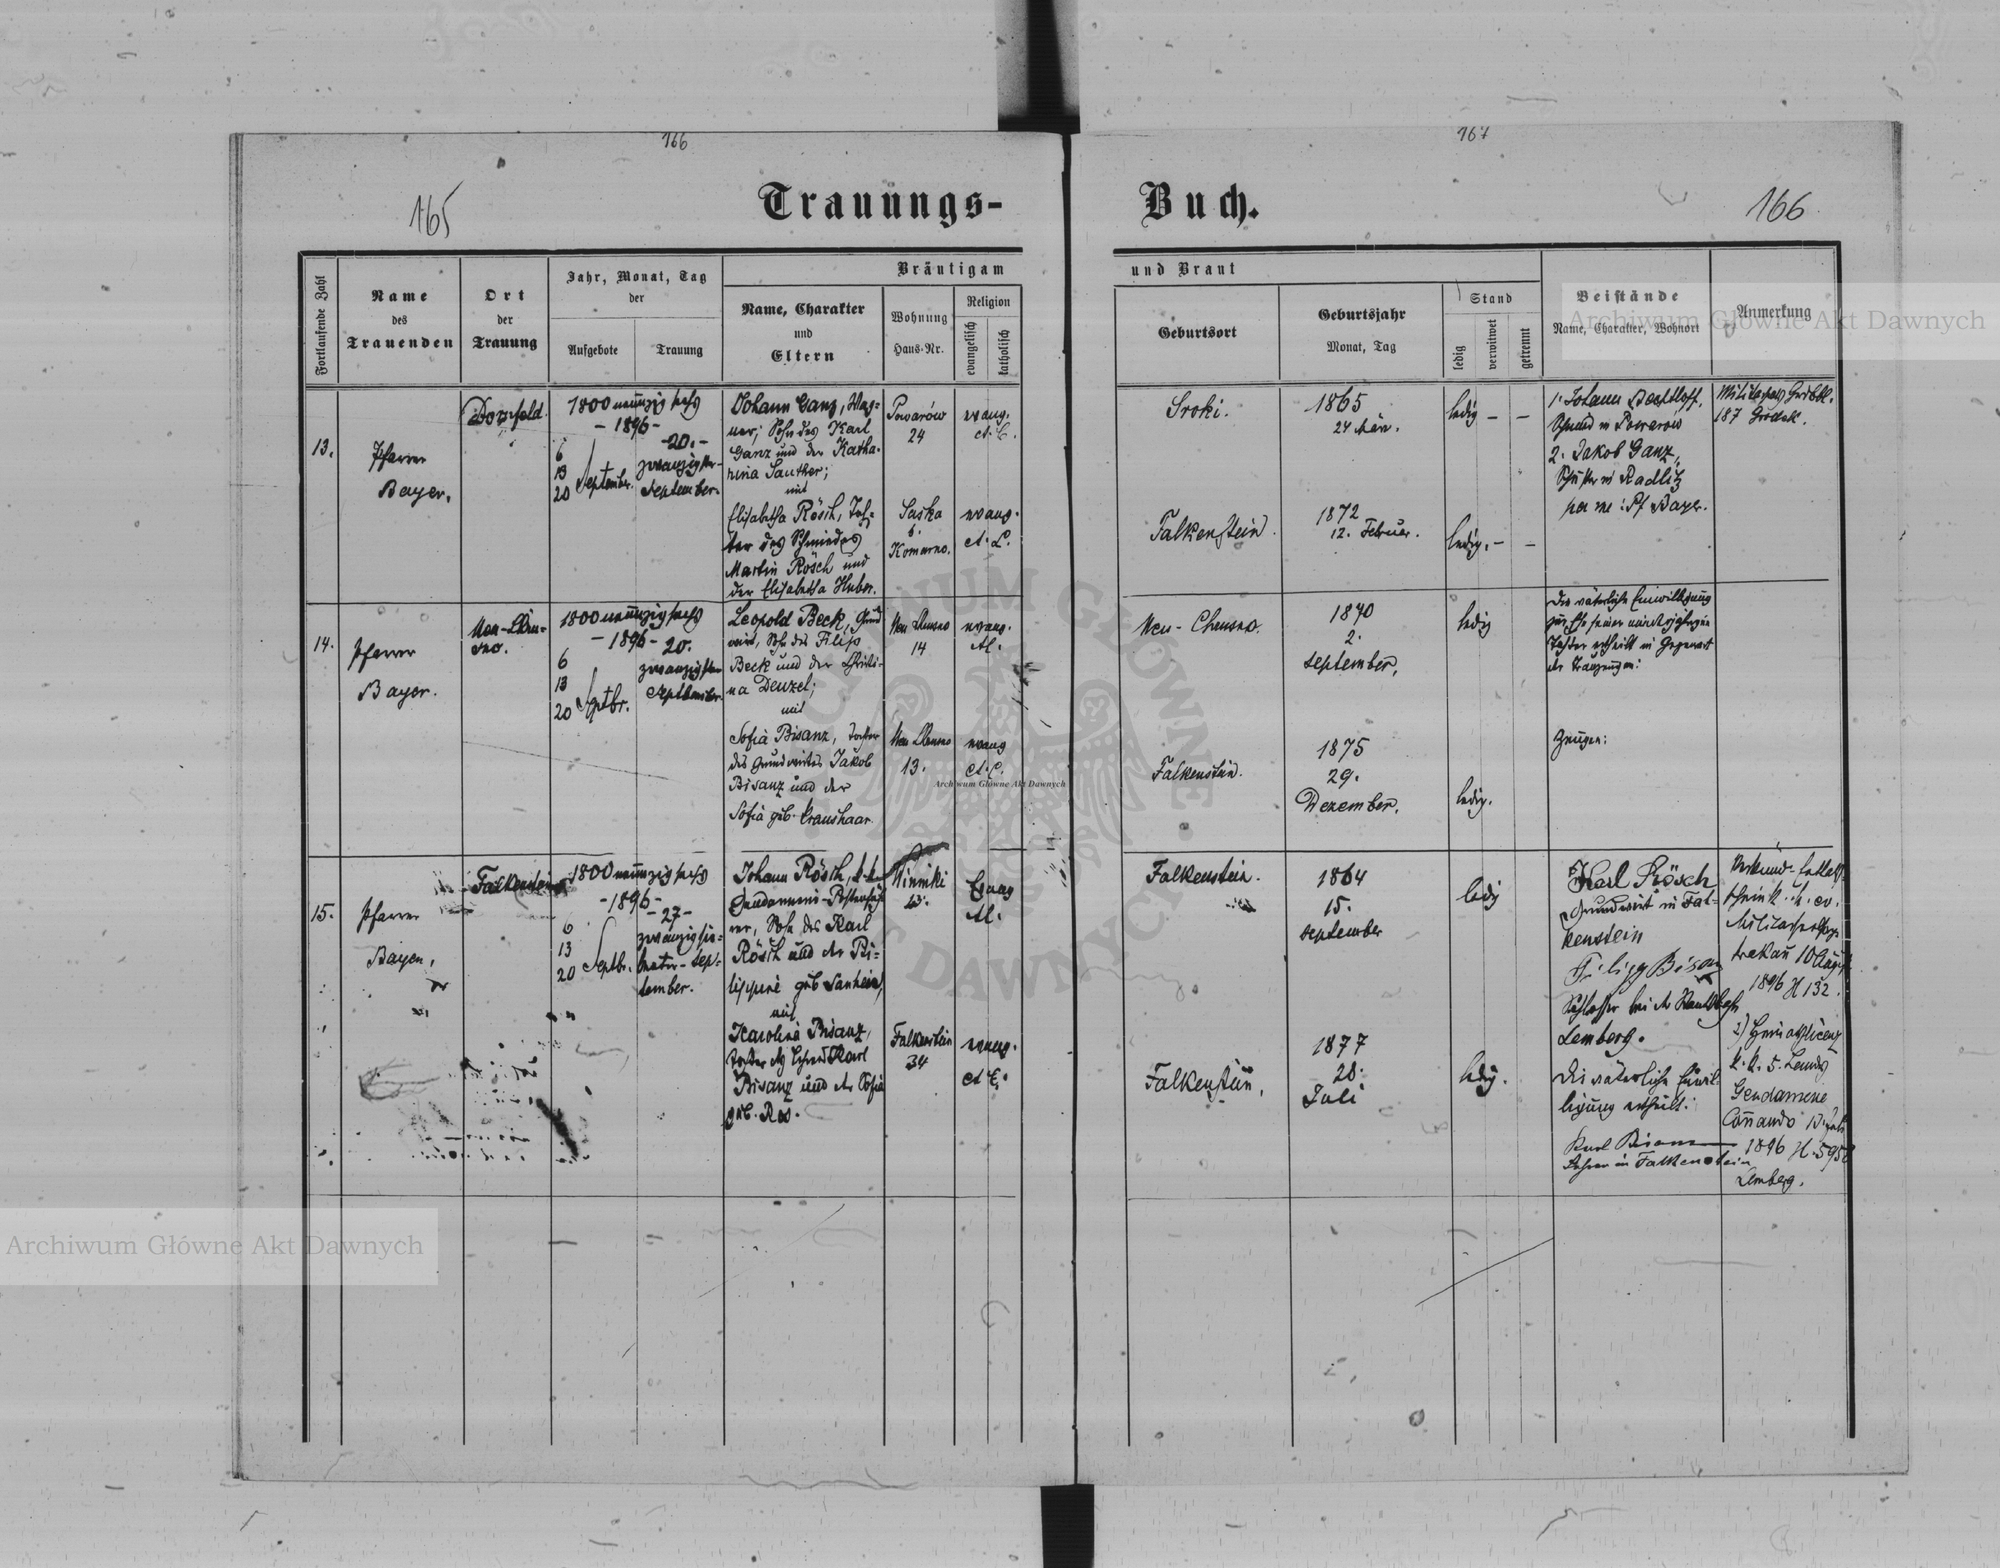 166
167
165
166
Trauungs-
Buch.
Fortlaufende Zahl
Name
des
Trauenden
Ort
der
Trauung
Jahr, Monat, Tag
der
Aufgebote
Trauung
Bräutigam
Name, Charakter
und
Eltern
Wohnung
Haus-Nr.
Religion
evangelisch
katholisch
und Braut
Geburtsort
Geburtsjahr
Monat, Tag
Stand
ledig
verwitwet
getrennt
Beistände
Name, Charakter, Wohnort
Anmerkung
13.
Pfarrer
Bayer.
Dornfeld
1800 neunzig sechs
- 1896 -
6
13
20
September.
- 20. -
zwanzigster
September.
Johann Ganz, Wag-
ner; Sohn des Karl
Ganz und der Katha-
rina Sauther;
mit
Elisabetha Rösch, Toch-
ter des Schmiedes
Martin Rösch und
der Elisabetha Huber.
Powarów
24
Saska
b.
Komarno.
evang.
A. C.
evang.
A. C.
Sroki.
Falkenstein.
1865
24 März.
1872
12. Februar.
ledig - -
ledig. - -
1. Johann Bechtloff,
Schmied in Powarów
2. Jakob Ganz,
in Radlitz
per me: Pf Bayer.
187 Gródek.
14.
Pfarrer
Bayer.
Neu-Chru-
sno.
1800 neunzig sechs
- 1896 -
6
13
20
Septbr.
20.
zwanzigsten
September.
Leopold Beck, Grund
wirt, Sohn des Filipp
Beck und der Christi-
na Denzel;
mit
Sofia Bisanz, Tochter
des Grundwirtes Jakob
Bisanz und der
Sofia geb. Kraushaar.
Neu Chrusno
14
Neu Chrusno
13.
evang.
A. C.
evang
A. C.
Neu-Chrusno.
Falkenstein.
1870
2.
September.
1875
29.
Dezember.
ledig
ledig.
Die väterliche Einwilligung
zur Ehe seiner minderjährigen
Tochter ertheilt in Gegenwart
der Trauzeugen:
Zeugen:
15.
Pfarrer
Bayer.
Falkenstein
1800 neunzig sechs
- 1896 -
6
13
20
Septbr.
- 27 -
zwanzig sie-
benter Sep-
tember.
Johann Rösch, k. k.
Gendarmerie-Postenfüh
rer, Sohn des Karl
Rösch und der Fi-
lippine geb Manheim,
mit
Karolina Bisanz,
Tochter des Karl
Bisanz und der Sofia
geb. Roś.
Winniki
Falkenstein
34
Evang
A. C.
evang.
A. C.
Falkenstein.
Falkenstein.
1864
15.
September
1877
28.
Juli
ledig
ledig.
Karl Rösch
Grundwirt in Fal-
kenstein
Filipp Bisanz
Schlosser bei der Staatsbahn
Lemberg.
Die väterliche Einwil-
ligung ertheilt:
Karl Bisanz
Lehrer in Falkenstein
10 August
1896 N 132.
2)
k. k. 5. Landes
Gendarmerie
Comando
1896 N. 595
Lemberg.
Archiwum Główne Akt Dawnych
Archiwum Główne Akt Dawnych
Archiwum Główne Akt Dawnych
ARCHIWUM GŁÓWNE AKT DAWNYCH